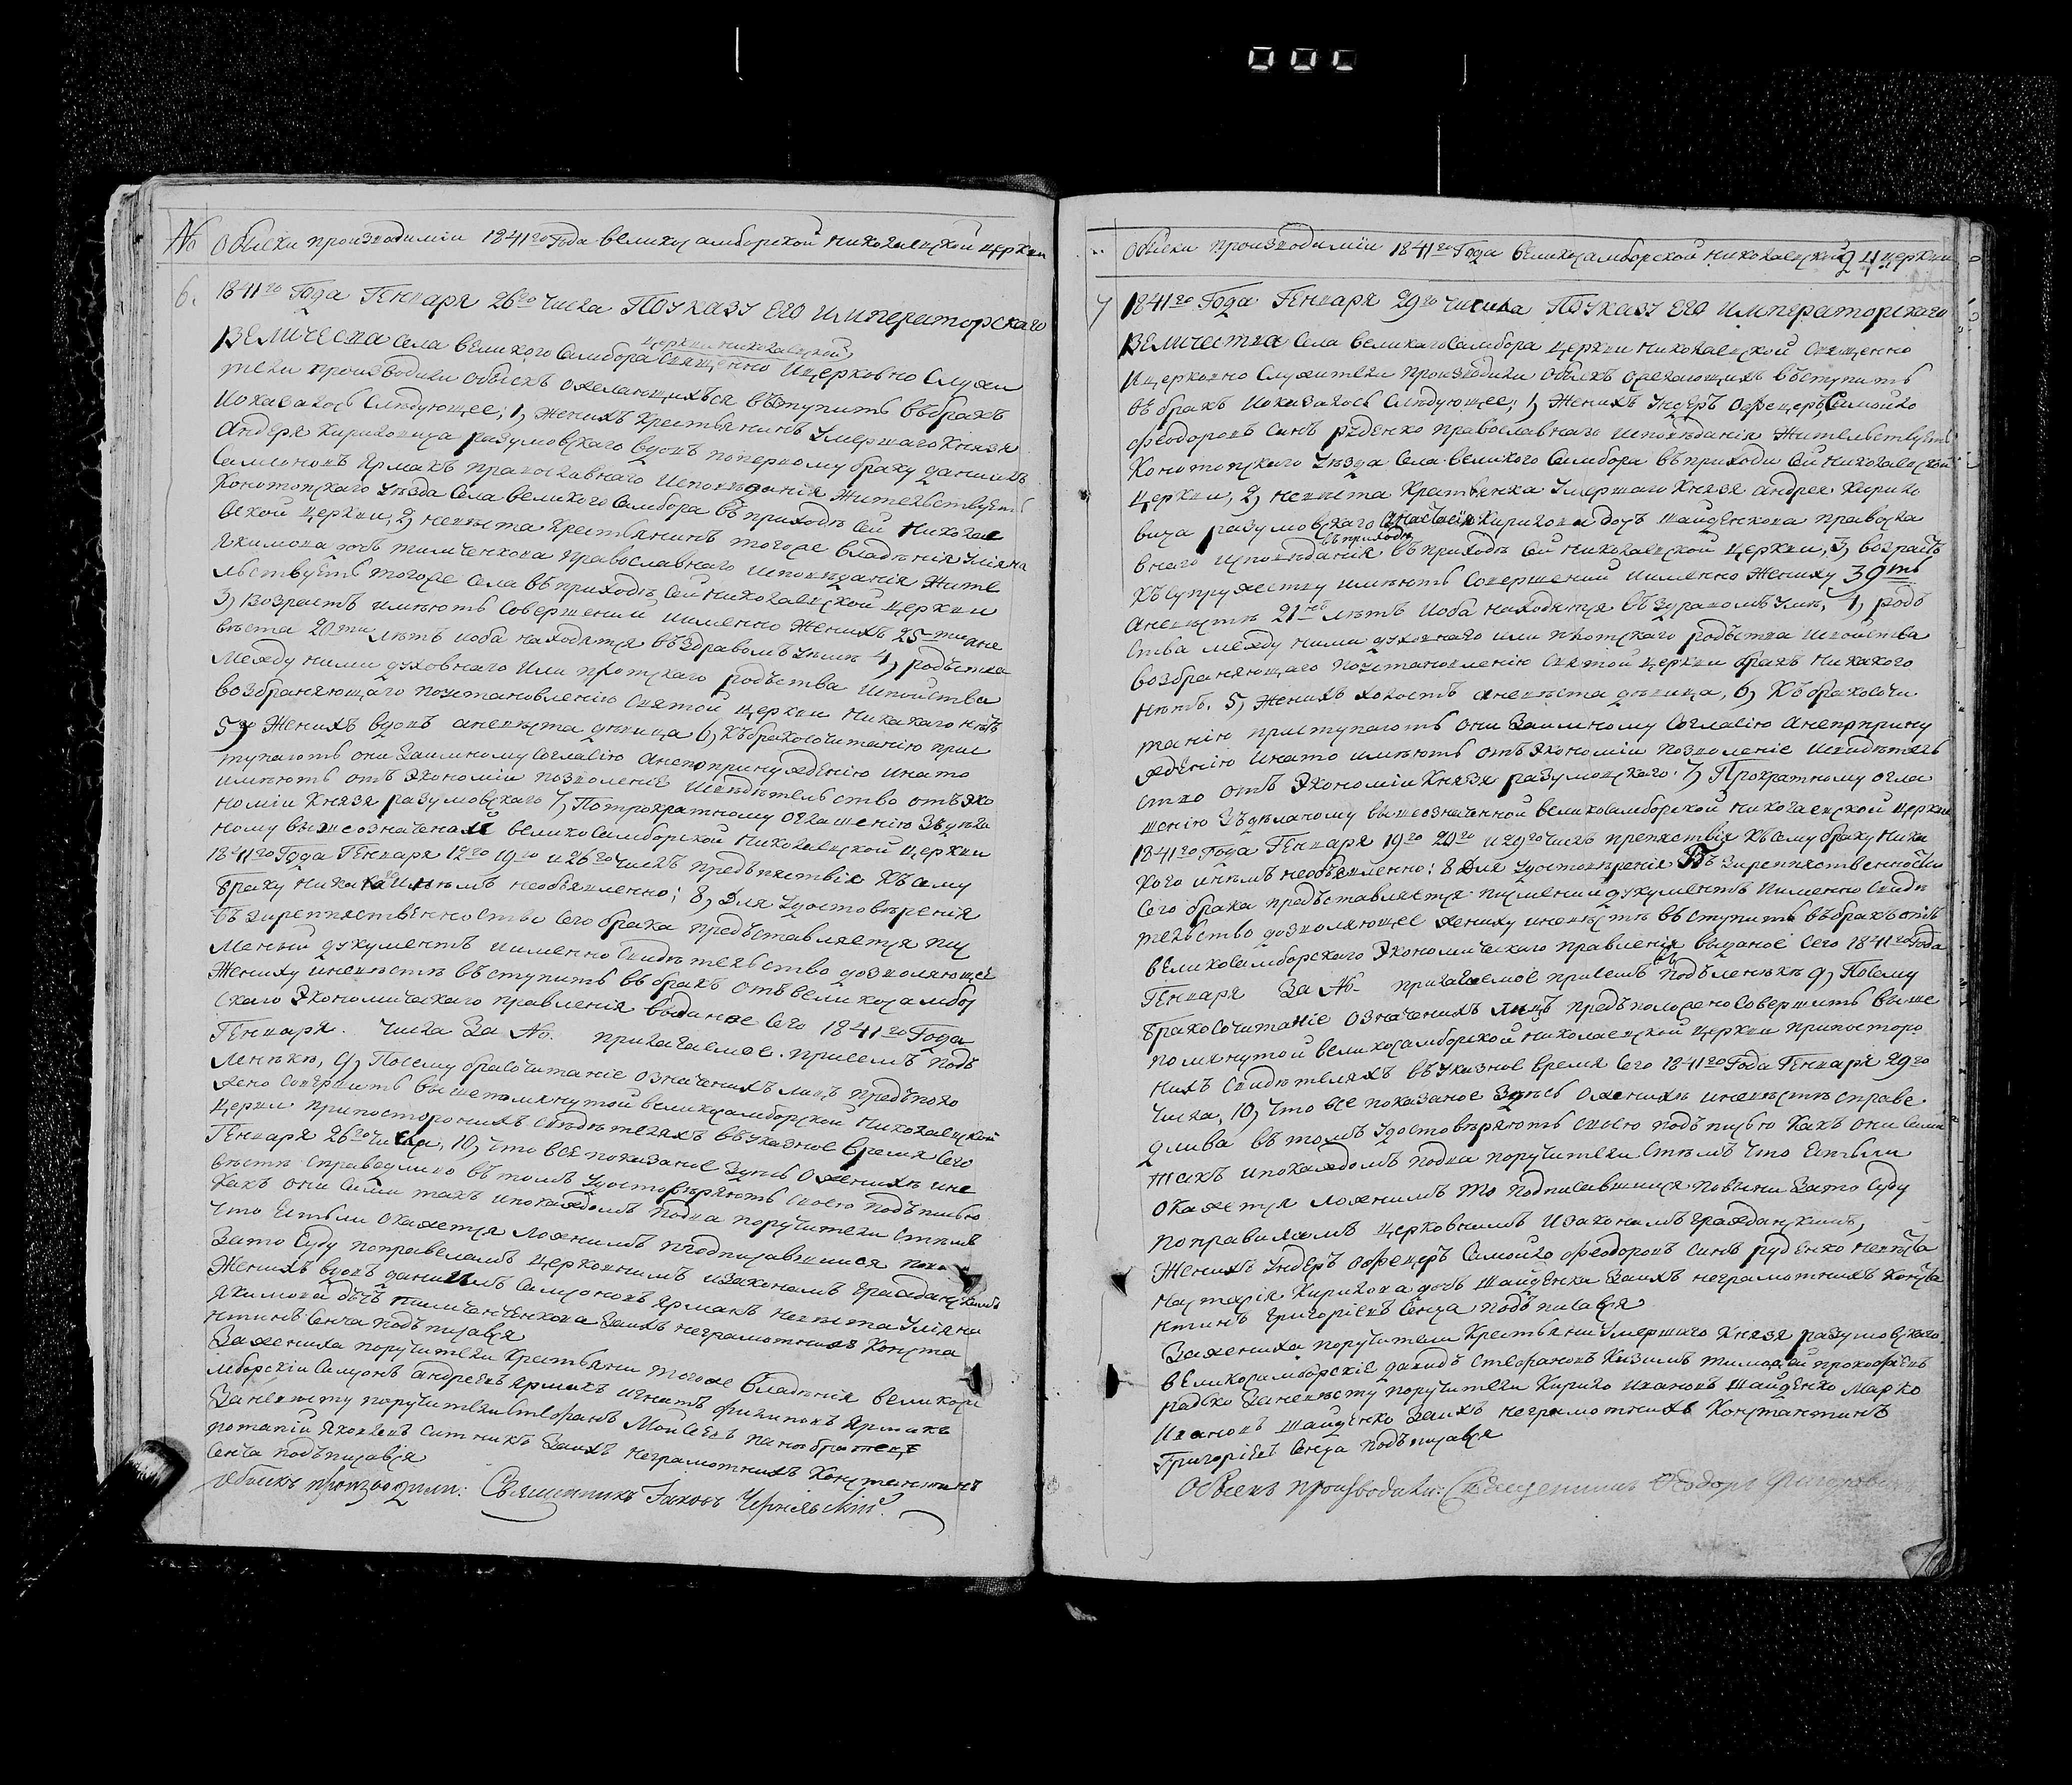 No Обыски производимiи 1841го Года великосамборской Николаевской церкви
6. 1841го Года Генваря 26го числа ПОУКАЗУ ЕГО Императорскаго
ВЕЛИЧЕСтва Села великого Самбора Священно Ицерковно Служи
церкви Николаевской
тели производили обыскъ ожелающихъся въступить въбракъ
Иоказалось Следующее; 1, Женихъ Крестьянинъ Умершаго Князя
Андрея Кириловича разумовскаго вдовъ поперному браку данiилъ
Самсоновъ Ярмакъ православнаго Исповѣданiя Жительствуетъ
Конотопскаго Уѣзда Села великого Самбора въ приходѣ Сей Николае
вской церкви, 2, невѣста крестьянинъ тогоже владѣнiя Улiяна
Якимова дочъ тимченкова Православнаго исповѣданiя Жите
льствуетъ тогоже Села въ приходѣ Сей Николаевской церкви
3, возрастъ имѣютъ Совершений иименно Женихъ 25ти ане
вѣста 20ти лѣтъ иоба находятся въздравомъ умѣ 4, родъства
между ними духовнаго или плотскаго родъства исвойства
возбраняющаго поустановленiю Святой церкви никакаго нѣтъ
5, Женихъ вдовъ аневѣста дѣвица 6, Къбракосочитанiю прис
тупаютъ они Взаимному Согласiю анепопринужденiю инато
имѣютъ отъ Экономiи позволенiе исвѣдѣтельство отъ эко
номiи Князя разумовскаго 7, Потрократному оглашенiю Здѣла
ному вышеозначеной великосамборской Николаевской церкви
1841го Года Генваря 12го 19го и 26го числъ предъпятствiя Къ сему
браку никакаго инѣмъ необъявленно; 8, Для Удостовѣренiя
бъзпрепятственностьи Сего брака предъставляется пис
меный документъ иименно Свидѣтельство дозволяющее
Жениху иневѣстѣ въступить въ бракъ отъ великосамбор
скаго Экономическаго правленiя выданое Сего 1841го Года
Генваря. числа За No. прилагаемое присемъ подъ
линъкѣ, 9, Посему бракосочитанiе означенихъ лицъ предъполо
жено Совершить вышепомянутой великосамборской Николаевской
церкви припосторонихъ Свѣдѣтеляхъ въ Указное время Сего
Генваря 26го числа, 10, что все показаное Здѣсь ожениху ине
вѣстѣ справедливо въ томъ Удостовѣряютъ Своею подъписью
Какъ они Сами такъ ипокаждомъ подва поручители Стѣмъ
что Естьли окажется ложнимъ топодписавшиися пови
Зато Суду поправеламъ церковнимъ изаконамъ Гражданскимъ
Женихъ вдовъ данiилъ Самсоновъ Ярмакъ невѣста Улiяна
Якимова дочъ тимченкова Заихъ неграмотнихъ Конста
нтинъ Сенча подъписався
Зажениха поручители Крестьяни тогоже владѣнiя великоса
мборскiи Самсонъ андреевъ Ярмакъ игнатъ филиповъ Ярмакъ
Заневѣсту поручители Стефанъ Моисеевъ панибратецъ
потапiй Яковлевъ Ситникъ Заихъ неграмотнихъ Константинъ
Сенча подъписався
Обыскъ производили: Священникъ Iаковъ Чернявскiй.
Обыски производимiи 1841го Года великосамборской Николаевской церкви
7 1841го Года Генваря 29го числа ПОУКАЗУ ЕГО Императорскаго
ВЕЛИЧЕСтва Села великаго Самбора церкви Николаевской Священно
Ицерковно Служители производили обыскъ ожелающихъ въступить
въ бракъ Иоказалось Слѣдующее; 1, Женихъ Ундеръ офецеръ Самойло
Феодоровъ Синъ руденко православнаго исповѣданiя Жительствуетъ
Конотопскаго Уѣзда Села великого Самбора въ приходи Сей Николаевской
церкви, 2, невѣста Крестьянка Умершаго Князя андрея Кирило
вича разумовскаго Анастасiя Кирилова дочъ шайденкова правосла
внаго исповѣданiя въ приходѣ Сей Николаевской церкви, 3, возрастъ
въ приходѣ
Къ Супружеству имѣютъ Совершений иименно Жениху 39ть
аневѣстѣ 21нъ лѣтъ иоба находятся въ Здравомъ Умѣ, 4, родъ
ства между ними духовнаго или плотскаго родъства исвойства
возбраняющаго поустановленiю Святой церкви бракъ никакого
нѣтъ. 5, Женихъ холостъ аневѣста дѣвица, 6, Къ бракосочи
танiю приступаютъ они Взаимному Согласiю анепоприну
жденiю инато имѣютъ отъ Экономiи позволенiе исвидѣтель
ство отъ Экономiи Князя разумовскаго. 7, Прократному огла
шенiю Здѣланому вышеозначенной великосамборской николаевской церкви
1841го Года Генваря 19го 20го и 29го числъ препятствiя Къ сему браку ника
кого инѣмъ необъявленно; 8 Для Удостовѣренiя Бъзпрепятственностьи
Сего брака предъставляется писмений документъ иименно Свидѣ
тельство дозволяющее жениху иневѣстѣ въступить въбракъ отъ
великосамборскаго Экономическаго правленiя выданое Сего 1841го Года
Генваря За No. прилагаемое присемъ подълинъкѣ 9, Посему
бракосочитанiе означенихъ лицъ предъположено Совершить выше
помянутой великосамборской николаевской церкви припосторо
нихъ Свидѣтеляхъ въ Указное время Сего 1841го Года Генваря 29го
числа, 10, что все показаное Здѣсь ожениху иневѣстѣ справе
длива въ томъ Удостовѣряютъ Своею подъписью Какъ они Сами
такъ ипокаждомъ подва поручители Стѣмъ что Естьли
окажется ложнимъ то подписавшиися повини Зато Суду
поправиламъ церковнимъ изаконамъ гражданскимъ,
Женихъ Ундеръ офецеръ Самойло Феодоровъ Синъ руденко невѣста
Настасiя Кирилова дочъ шайденки Заихъ неграмотнихъ Конста
нтинъ Григорiевъ Сенча подъписався
Зажениха поручители Крестьяни Умершаго Князя разумовскаго
великосамборскiе давидъ Стефановъ Кизимъ тимофей прокофiевъ
радко Заневѣсту поручители Кирило Ивановъ Шайденко Марко
Ивановъ шайденко Заихъ неграмотнихъ Константинъ
Григорiевъ Сенча подъписався
Обыскъ производили: Священникъ Феодоръ